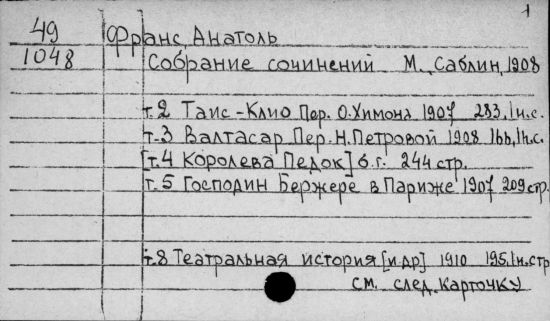 1
49 Франс, Анатоль
1048 Собрание сочинений М., Саблин, 1908
т.2 Таис-Клио Пер. О.Химона 1907 283, 1н.с.
т.3 Валтасар Пер. Н.Петровой 1908 166, 1н.с.
[т.4 Королева Педок] б.г. 244 стр.
т.5 Господин Бержере в Париже 1907 209 стр.
т.8 Театральная история [и др] 1910 195, 1н.стр
см. след. карточку